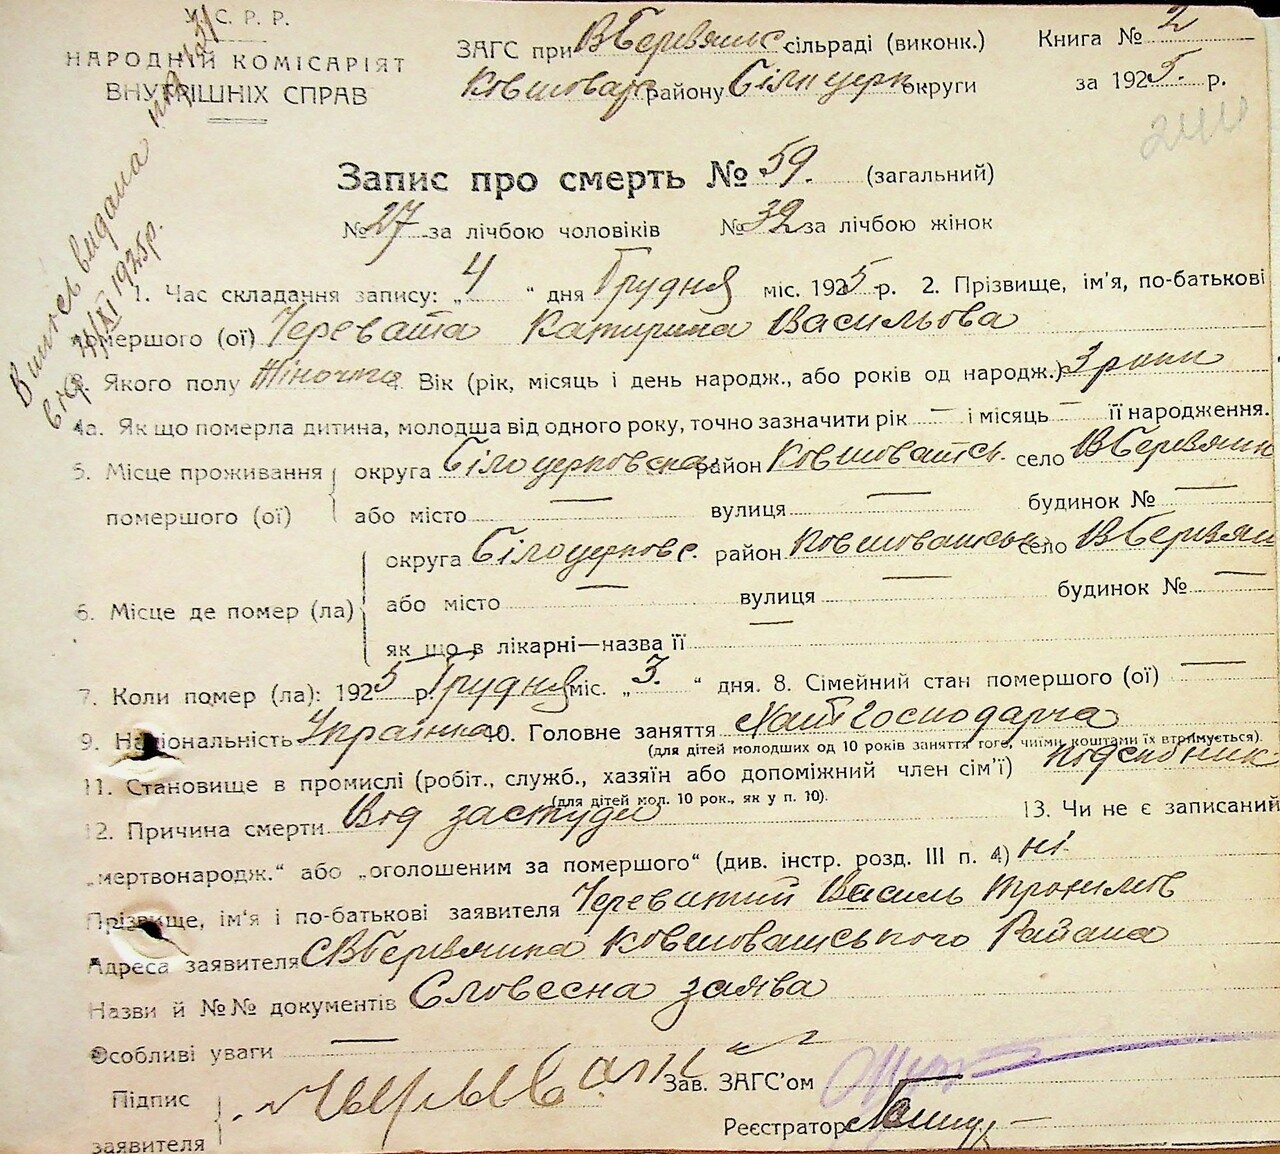 У.С.Р.Р.
НАРОДНІЙ КОМІСАРІЯТ
ВНУТРІШНІХ СПРАВ
ЗАГС при ВБервянськ сільраді (виконк.) Книга № 2
Ковшоват району Білоцерк округи за 1925. р.
244
Випись видана
11/XI 1925р.
Запис про смерть № 59. (загальний)
№ 27 за лічбою чоловіків № 32 за лічбою жінок
1. Час складання запису: „ 4 “ дня Грудня міс. 1925 р. 2. Прізвище, ім'я, по-батькові
помершого (ої) Черевата Катирина Васильова
3. Якого полу Жіночта 4. Вік (рік, місяць і день народж., або років од народж.) 3 роки
4а. Як що померла дитина, молодша від одного року, точно зазначити рік — і місяць — її народження.
5. Місце проживання округа Білоцерковська район Ковшоватськ. село ВБервянк
помершого (ої) або місто — вулиця — будинок № —
округа Білоцерковс. район Ковшоватськ село ВБервян
6. Місце де помер (ла) або місто — вулиця — будинок № —
як що в лікарні—назва її —
7. Коли помер (ла): 1925 р. Грудня міс. „ 3. “ дня. 8. Сімейний стан помершого (ої) —
9. Національність Українка 10. Головне заняття Хатгосподарча
(для дітей молодших од 10 років заняття того, чиїми коштами їх втримується).
11. Становище в промислі (робіт., служб., хазяїн або допоміжний член сім'ї) подсобник
(для дітей мол. 10 рок., як у п. 10).
12. Причина смерти Вод застуди 13. Чи не є записаний
„мертвонародж.“ або „оголошеним за помершого“ (див. інстр. розд. III п. 4) ні
Прізвище, ім'я і по-батькові заявителя Череватий Василь Трохимов
Адреса заявителя с ВБервянка Ковшоватського Района
Назви й №№ документів Словесна заява
Особливі уваги —
Підпис
заявителя
Зав. ЗАГС'ом
Реєстратор